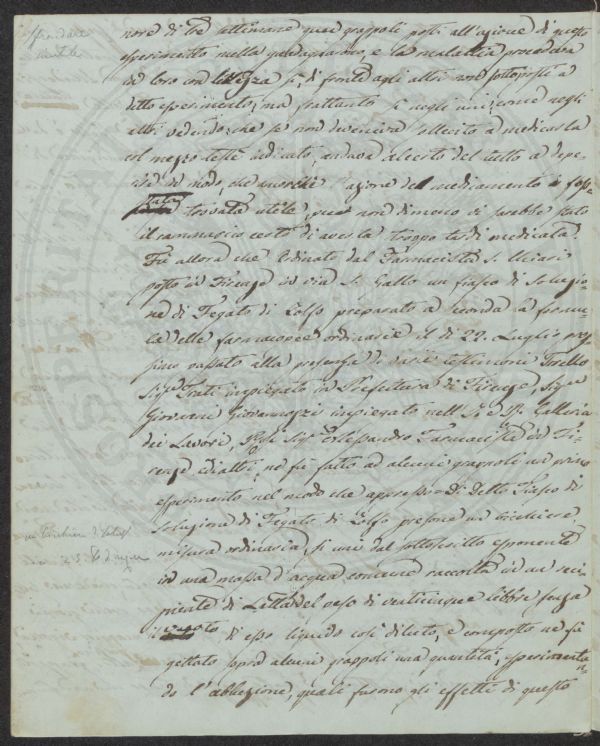 nore di tre settimane quei grappoli posti all'azione di questo
esperimento nella guarigione, e la malattia procedeva
in loro con lentezza sì, di fronte agli altri non sottoposti a
detto esperimento, ma frattanto sì negli uni, come negli
altri vedendo che se non diveniva sollecito a medicarla
col mezzo testè indicato, andava al certo del tutto a depe-
rire di modo, che anorchè l'azione del medicamento fosse
trovata utile, pure non di meno vi sarebbe stato
il rammarico certo di averla troppo tardi medicata.
Fu allora che ordinato dal Farmacista S. Chiari
posto in Firenze in via S. Gallo un fiasco di Soluzio-
ne di Fegato di Zolfo preparato a seconda la formu-
la delle farmacopee ordinarie il dì 22. Luglio pros-
simo passato alla presenza di varii testimoni
Sig.r Frati impiegato in Prefettura di Firenze, Sig.r
Giovanni Giovannozzi impiegato nell' I. e R. Galleria
dei Lavori, Sig.r Alessandro Farmacista in Fi-
renze ed altri, ne fu fatto ad alcuni grappoli un primo
esperimento nel modo che appresso = Di detto Fiasco di
Soluzione di Fegato di Zolfo presone un bicchiere
misura ordinaria, si unì dal sottoscritto esponente
in una massa d'acqua comune raccolta in un reci-
piente di Latta del peso di venticinque libbre senza
di esso liquido così diluto, e composto ne fu
gettato sopra alcuni grappoli una quantità, esperimentan-
do l'abluzione, quali furono gli effetti di questo
un bicchiere
23. d'acqua